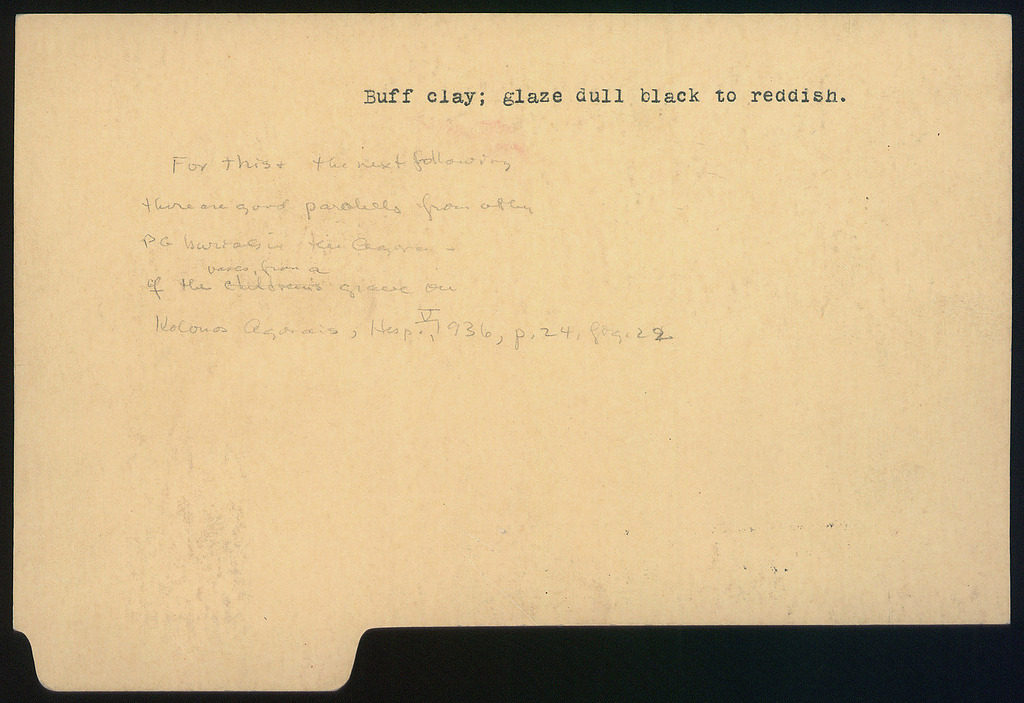 Buff clay; glaze dull black to reddish.
For this + the next following
there are good parallels from other
PG burials in the Agora -
vases, from a
cf the children's grave on
Kolonos Agoraios, Hesp. V, 1936, p. 24, fig. 22